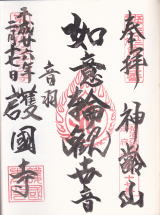 奉拝
神齢山
如意輪観世音
音羽
護国寺
平成廿六年
二月十七日